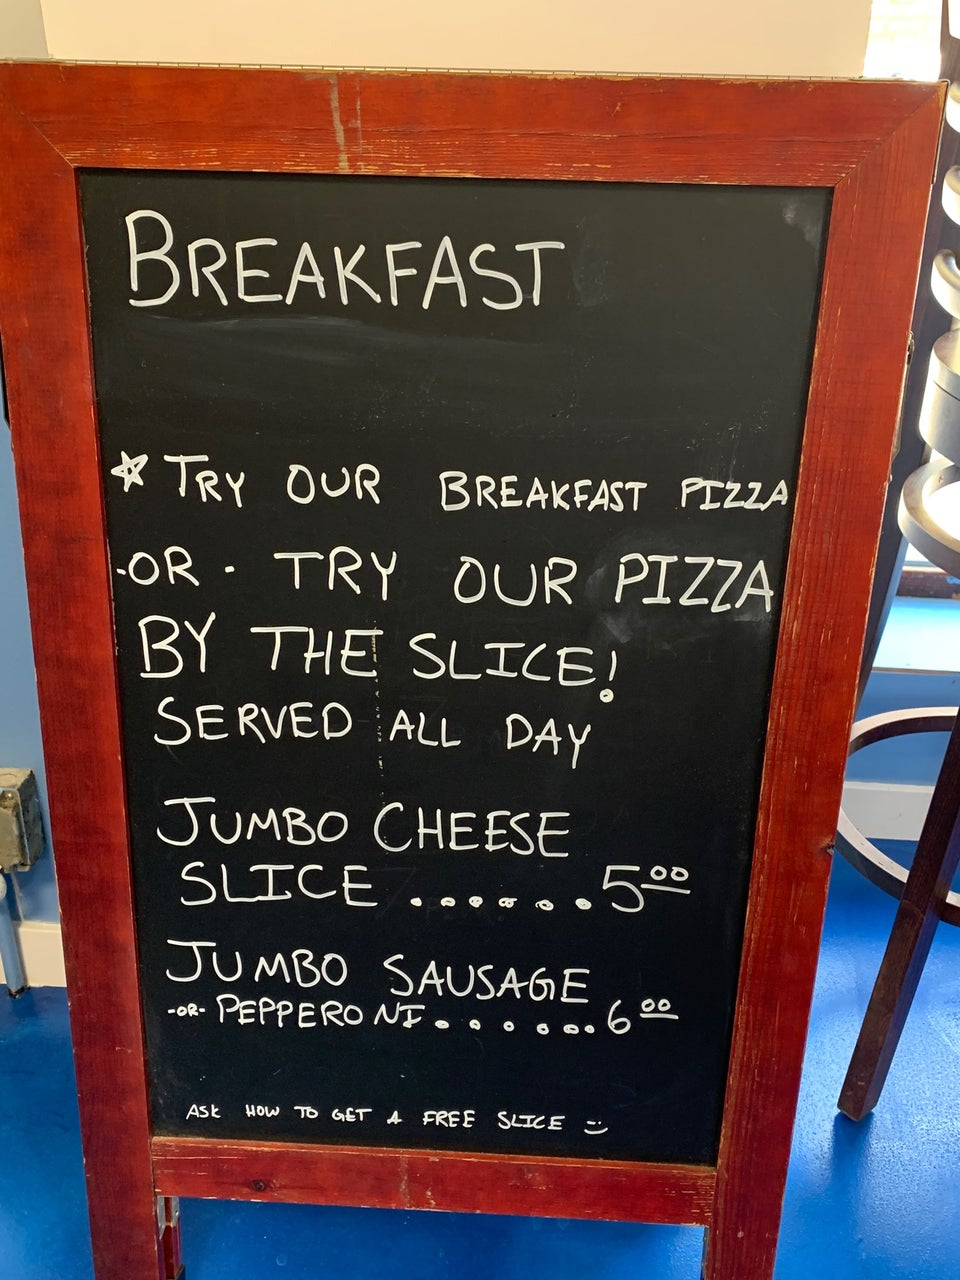 BREAKFAST
☆ TRY OUR BREAKFAST PIZZA
-OR- TRY OUR PIZZA
BY THE SLICE!
SERVED ALL DAY
JUMBO CHEESE
SLICE ...... 5⁰⁰
JUMBO SAUSAGE
-OR- PEPPERONI ...... 6⁰⁰
ASK HOW TO GET A FREE SLICE :)